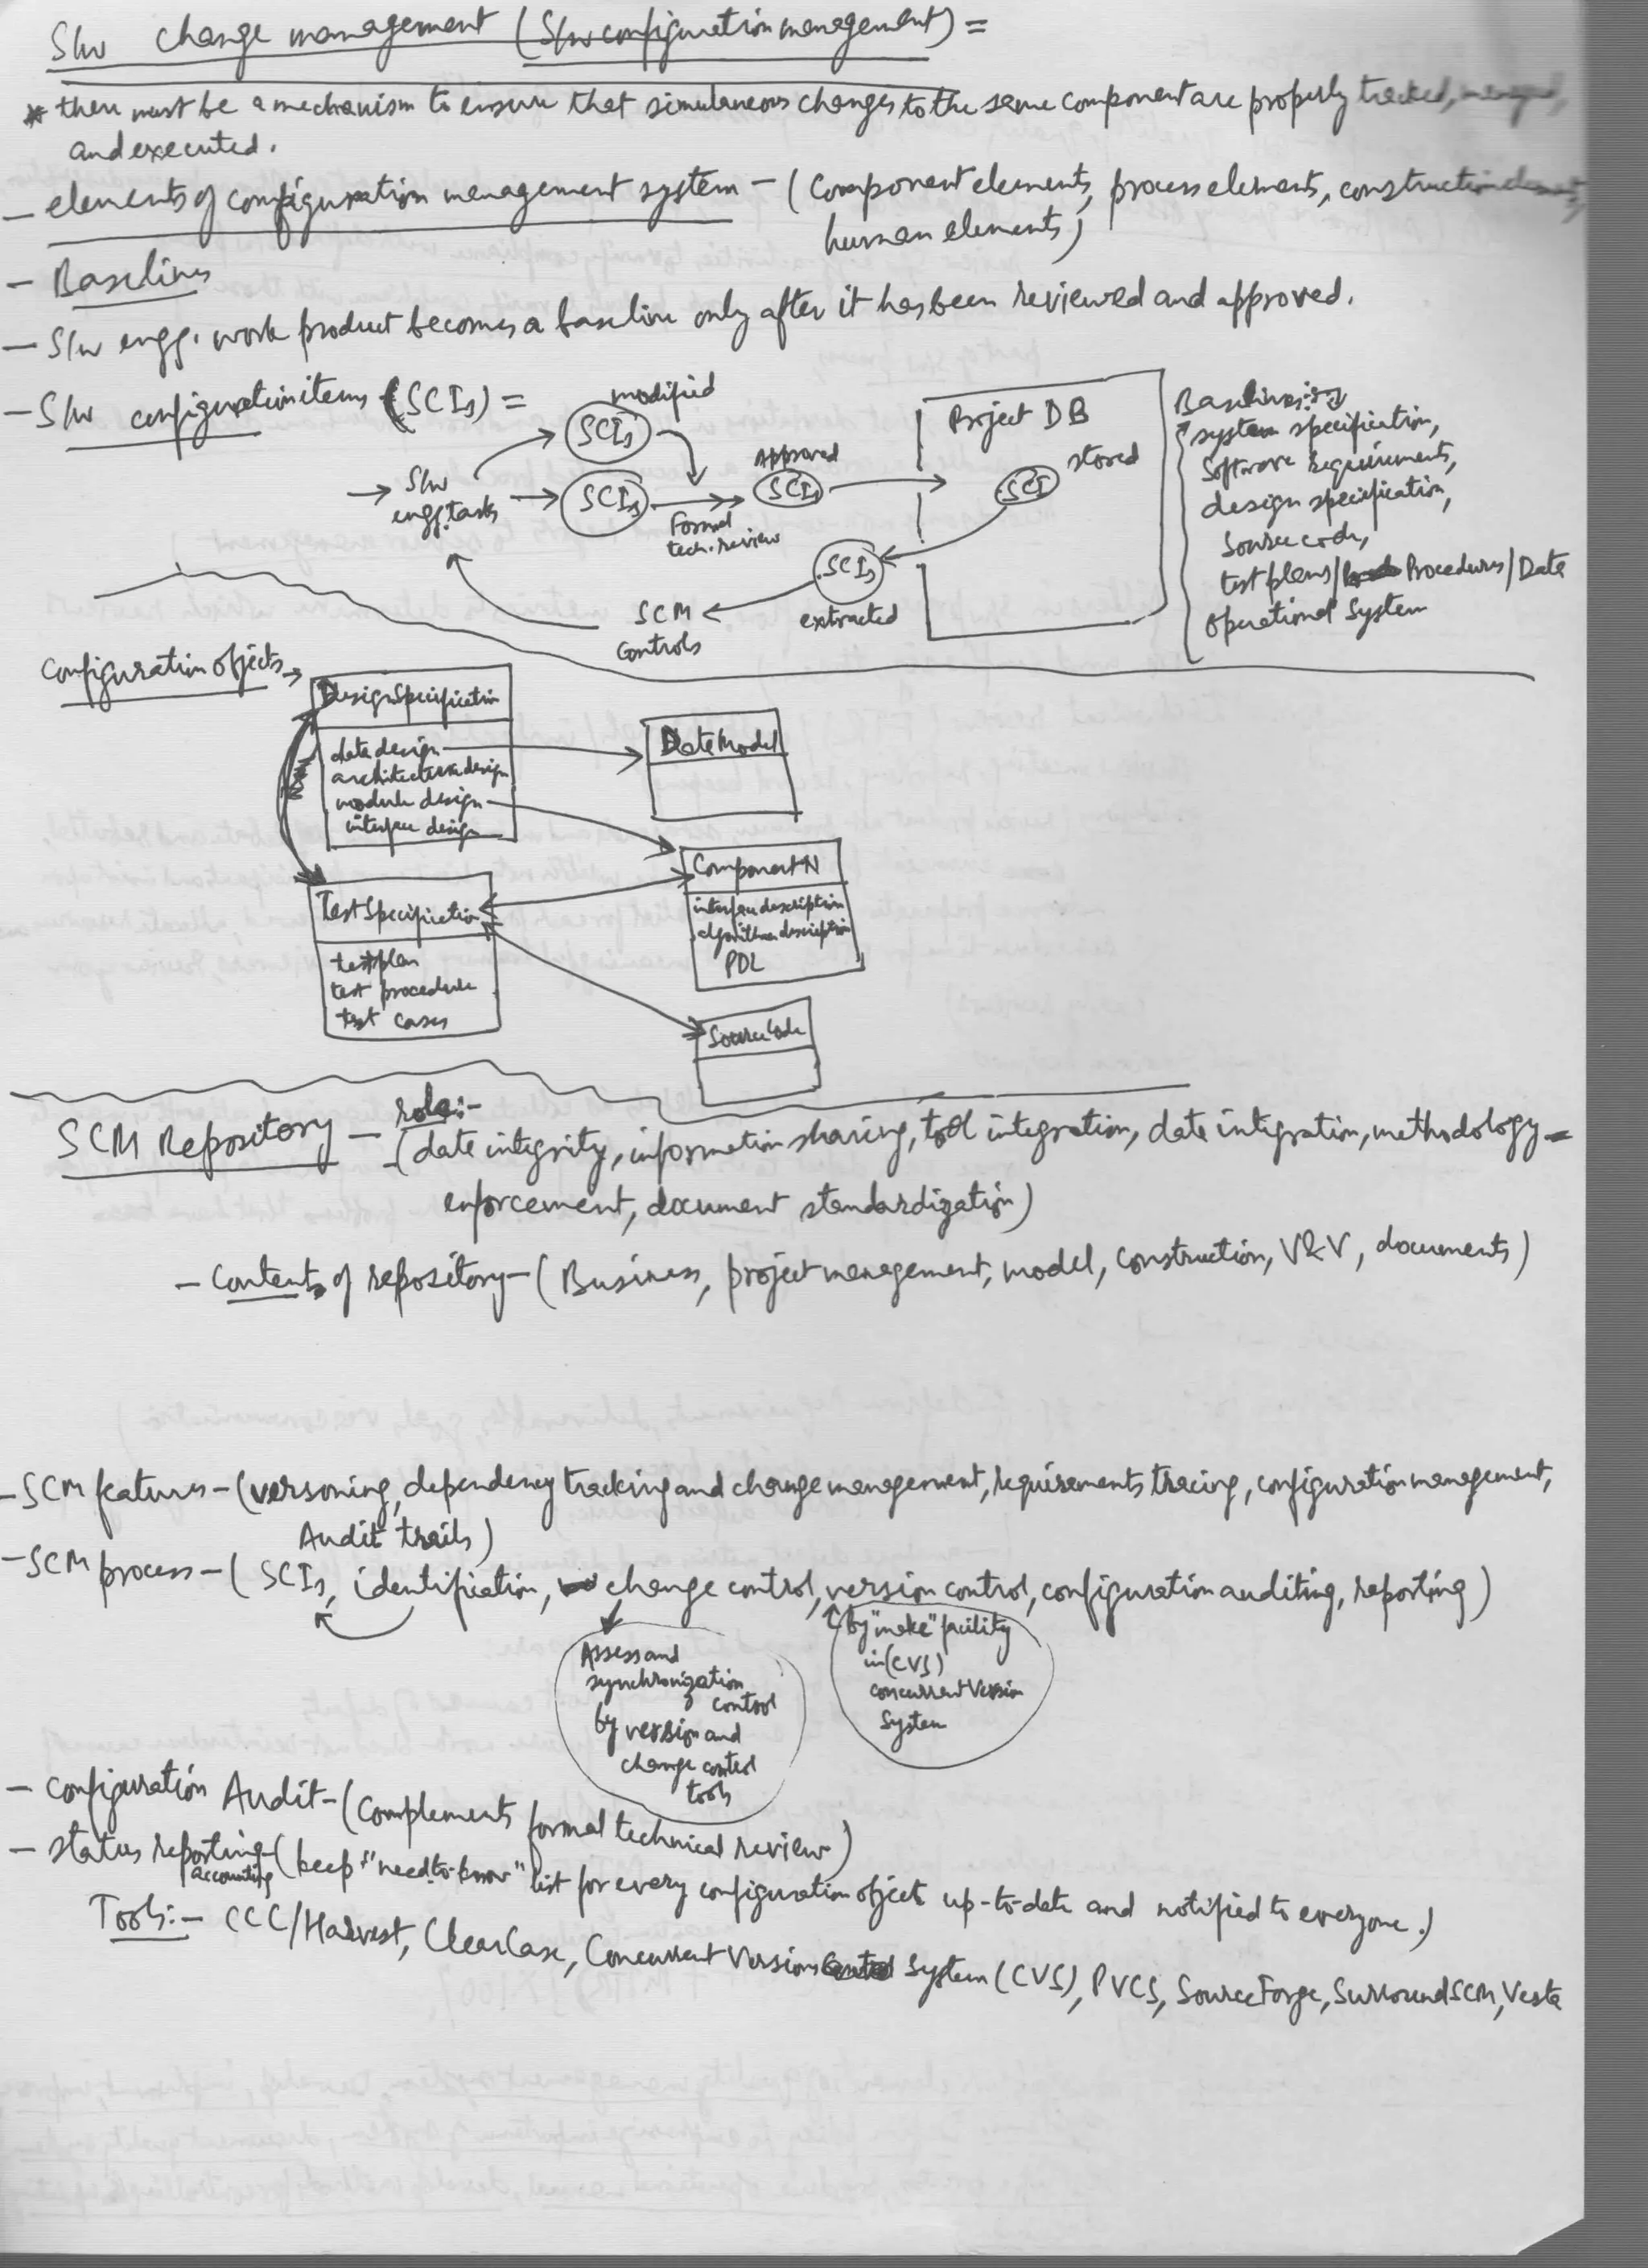 S/w change management (S/w configuration management) =
* there must be a mechanism to ensure that simultaneous changes to the same component are properly tracked, managed,
and executed.
- elements of configuration management system - (Component elements, process elements, construction elements,
human elements)
- Baselines
- S/w engg. work product becomes a baseline only after it has been reviewed and approved.
- S/w configuration items (SCIs) =
modified
SCIs
S/w
engg. tasks
SCIs
Formal
tech. review
Approved
SCIs
Project DB
SCI
stored
SCIs
extracted
SCM
Controls
Baselines:-
system specification,
Software Requirements,
design specification,
Source code,
test plans/Procedures/Data
Operational System
Configuration objects →
Design Specification
data design
architecture design
module design
interface design
Data Model
Component N
interface description
algorithm description
PDL
Test Specification
test plan
test procedure
test cases
Source Code
SCM Repository - role:-
- (data integrity, information sharing, tool integration, data integration, methodology -
enforcement, document standardization)
- Contents of repository - (Business, project management, model, construction, V&V, documents)
- SCM features - (versoning, dependency tracking and change management, requirements tracing, configuration management,
Audit trails)
- SCM process - (SCIs, identification, change control, version control, configuration auditing, reporting)
Assess and
synchronization
control
by version and
change control
tools
by "make" facility
in (CVS)
concurrent Version
System
- Configuration Audit - (Complements formal technical review)
- status reporting - (keep "need-to-know" list for every configuration object up-to-date and notified to everyone.)
accounting
Tools:- CCC/Harvest, ClearCase, Concurrent Version System (CVS), PVCS, SourceForge, SurroundSCM, Vesta